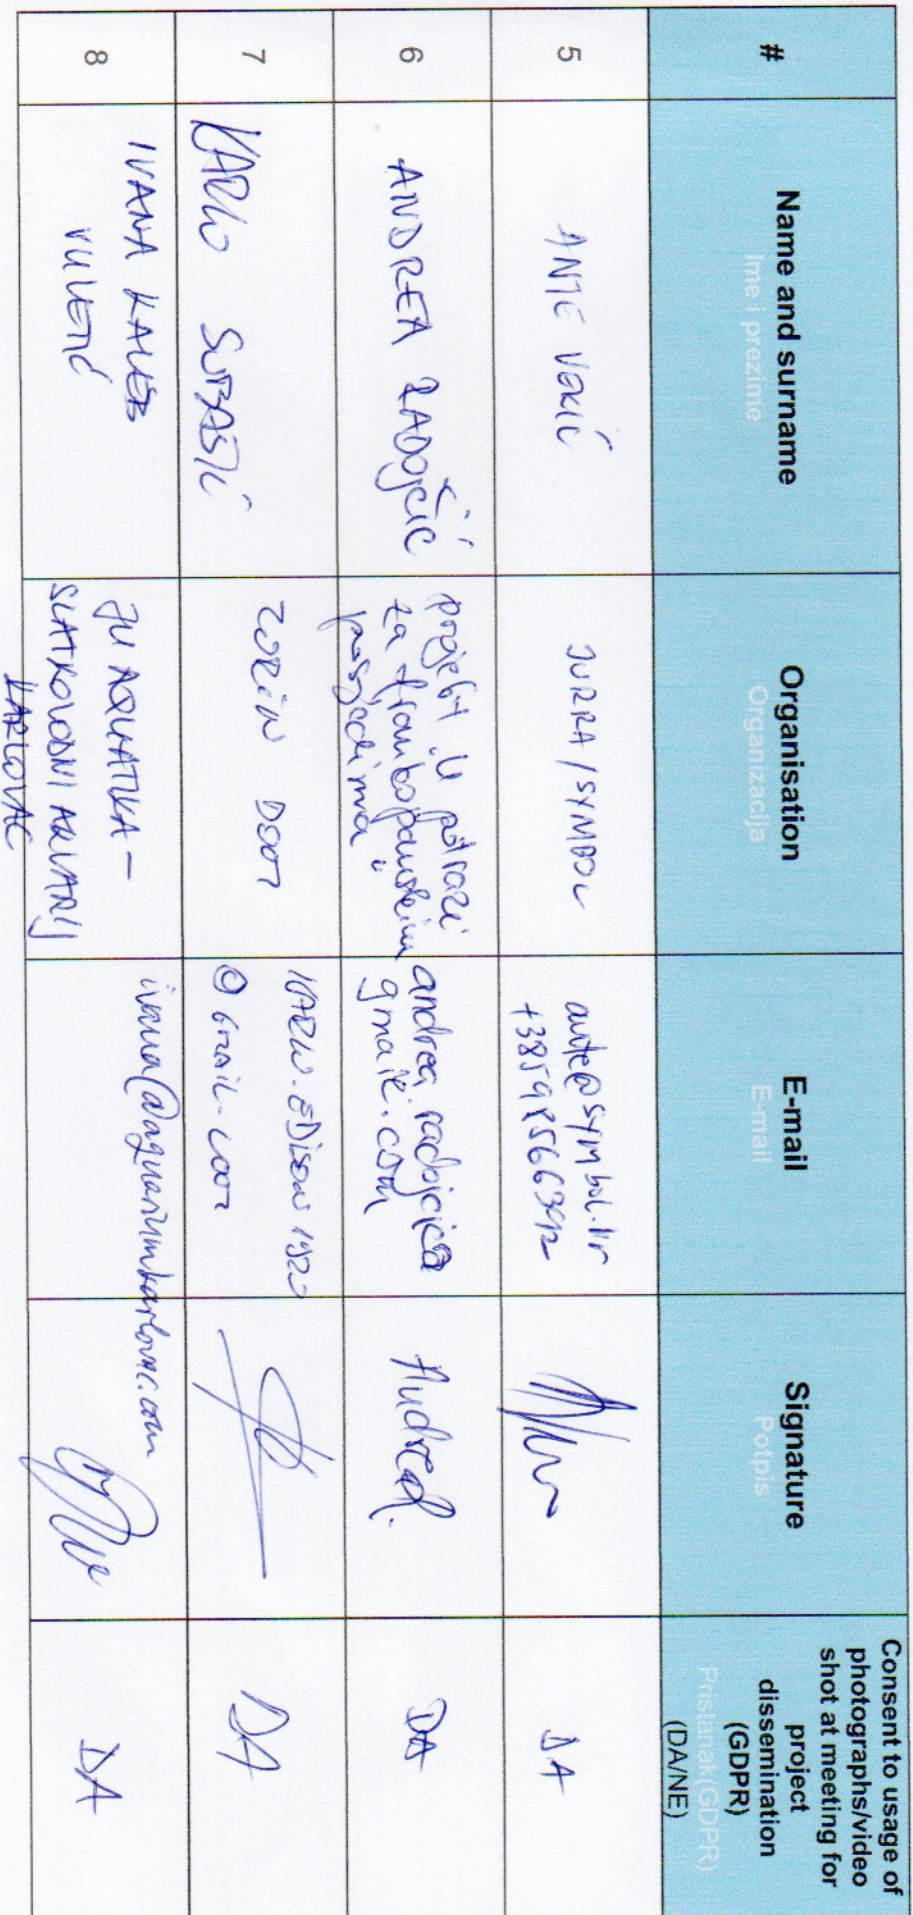 #
Name and surname
Ime i prezime
Organisation
Organizacija
E-mail
E-mail
Signature
Potpis
Consent to usage of
photographs/video
shot at meeting for
project
dissemination
(GDPR)
Pristanak(GDPR)
(DA/NE)
5
ANTE VEKIĆ
JURRA/SYMBOL
ante@symbol.hr
+385
DA
6
ANDREA RADOJČIĆ
projekt U potrazi
za frankopanskim
posjedima
andrea.radojcic@
gmail.com
Andrea R.
DA
7
KARLO
ZORIN DOOT
KARLO.EDISON1920
@GMAIL.COM
DA
8
IVANA KALEB
VULETIĆ
JU AQUATIKA -
SLATKOVODNI AKVARIJ
KARLOVAC
ivana@aquariumkarlovac.com
DA